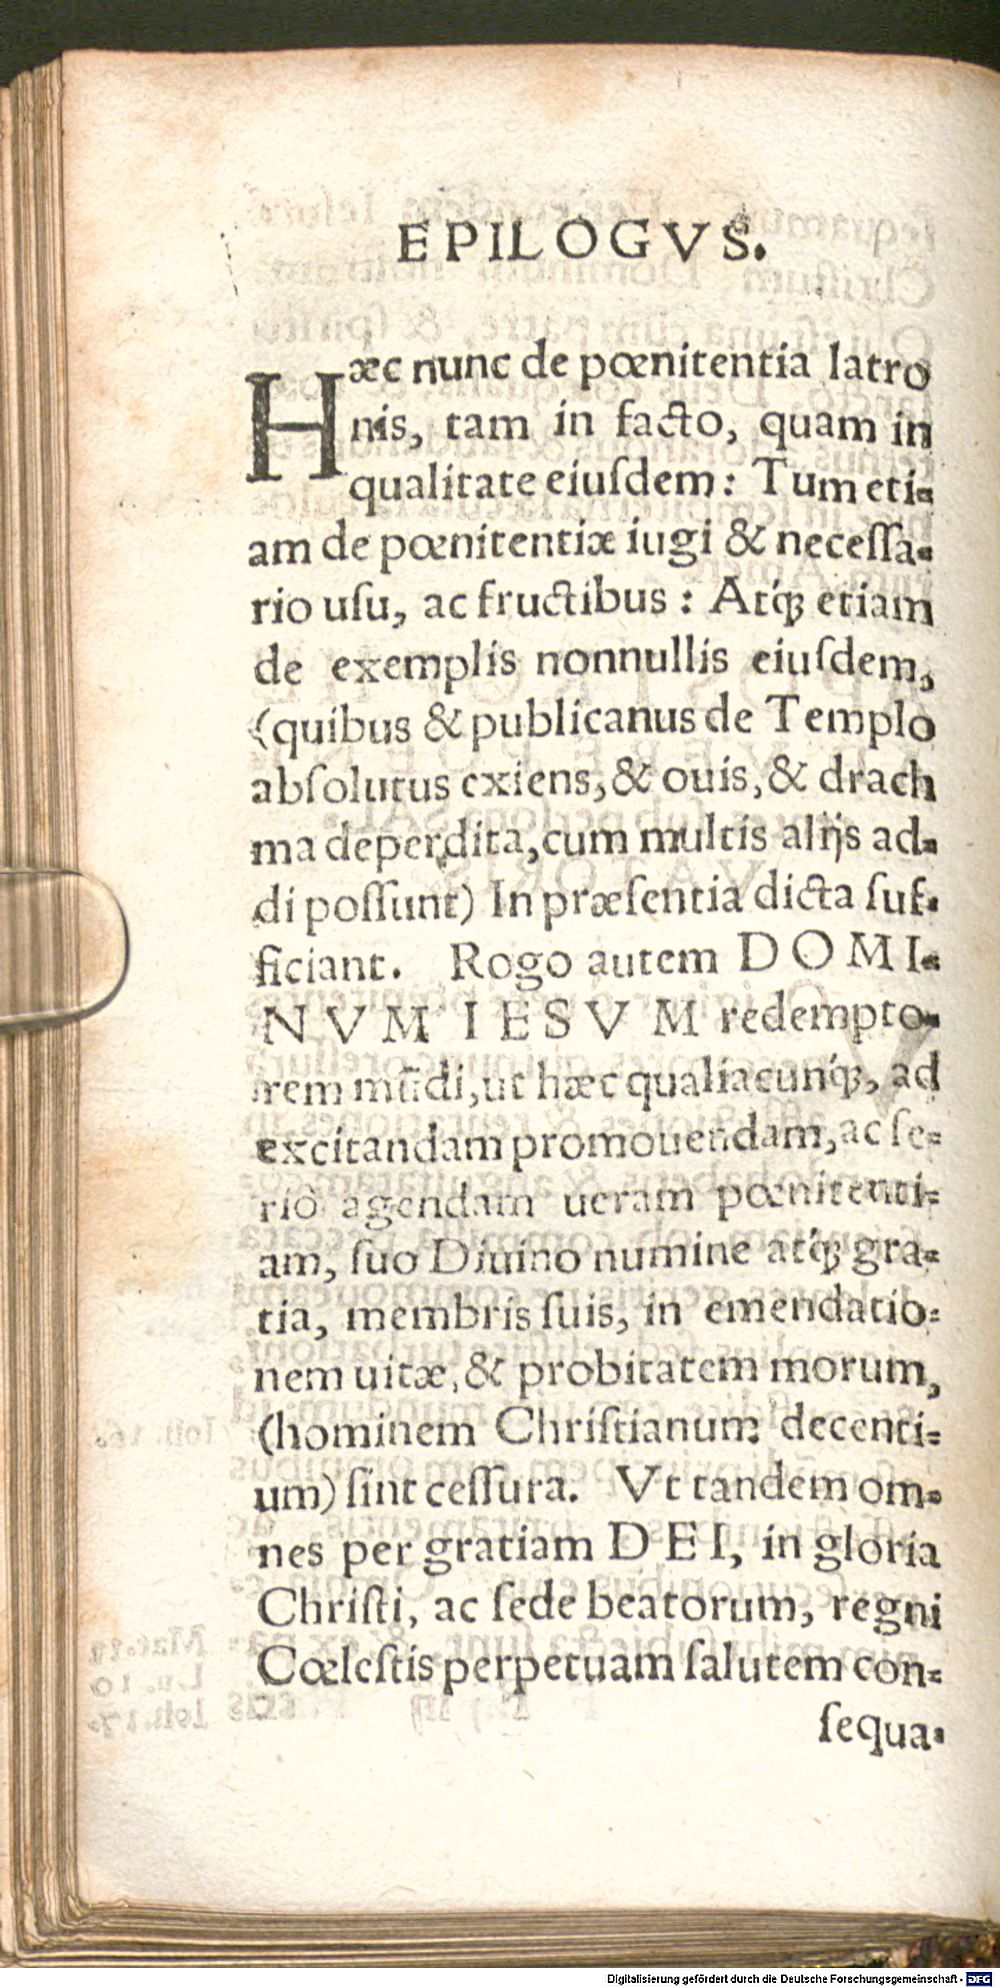 EPILOGVS.
Hæc nunc de pœnitentia latro
nis, tam in facto, quam in
qualitate eiuſdem: Tum eti-
am de pœnitentiæ iugi & neceſſa-
rio uſu, ac fructibus: Atq́ꝫ etiam
de exemplis nonnullis eiuſdem,
(quibus & publicanus de Templo
abſolutus exiens, & ouis, & drach
ma deperdita, cum multis alijs ad-
di poſſunt) In præſentia dicta ſuf-
ficiant. Rogo autem DOMI-
NVM IESVM redempto-
rem mũdi, ut hæc qualiacunq́ꝫ, ad
excitandam promouendam, ac ſe-
riò agendam ueram pœnitenti-
am, ſuo Diuino numine atq́ꝫ gra-
tia, membris ſuis, in emendatio-
nem uitæ, & probitatem morum,
(hominem Chriſtianum decenti-
um) ſint ceſſura. Vt tandem om-
nes per gratiam DEI, in gloria
Chriſti, ac ſede beatorum, regni
Cœleſtis perpetuam ſalutem con-
ſequa-
Digitalisierung gefördert durch die Deutsche Forschungsgemeinschaft - DFG